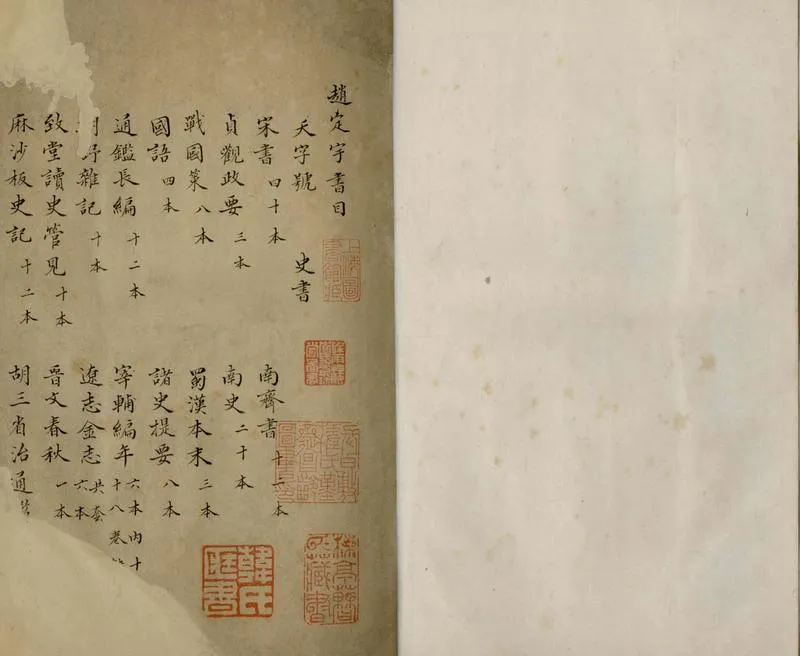 趙定宇書目
天字號 史書
宋書 四十本 南齊書 十一本
貞觀政要 三本 南史 二十本
戰國策 八本 蜀漢本末 三本
國語 四本 諸史提要 八本
通鑑長編 十二本 宰輔編年 六本內十 十八卷
野雜記 十本 遼志金志 共套 六本
致堂讀史管見 十本 晉文春秋 一本
麻沙板史記 十二本 胡三省治通
上海圖書館藏
韓氏藏書